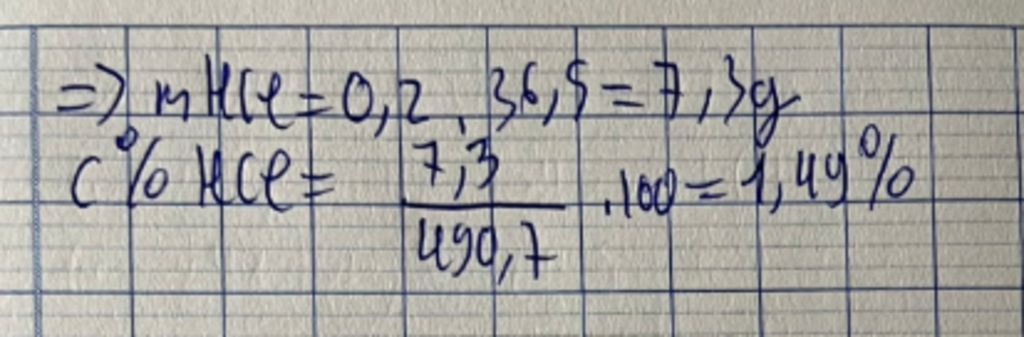 => mHCl = 0,2 . 36,5 = 7,3g
C% HCl = 7,3 / 490,7 . 100 = 1,49%